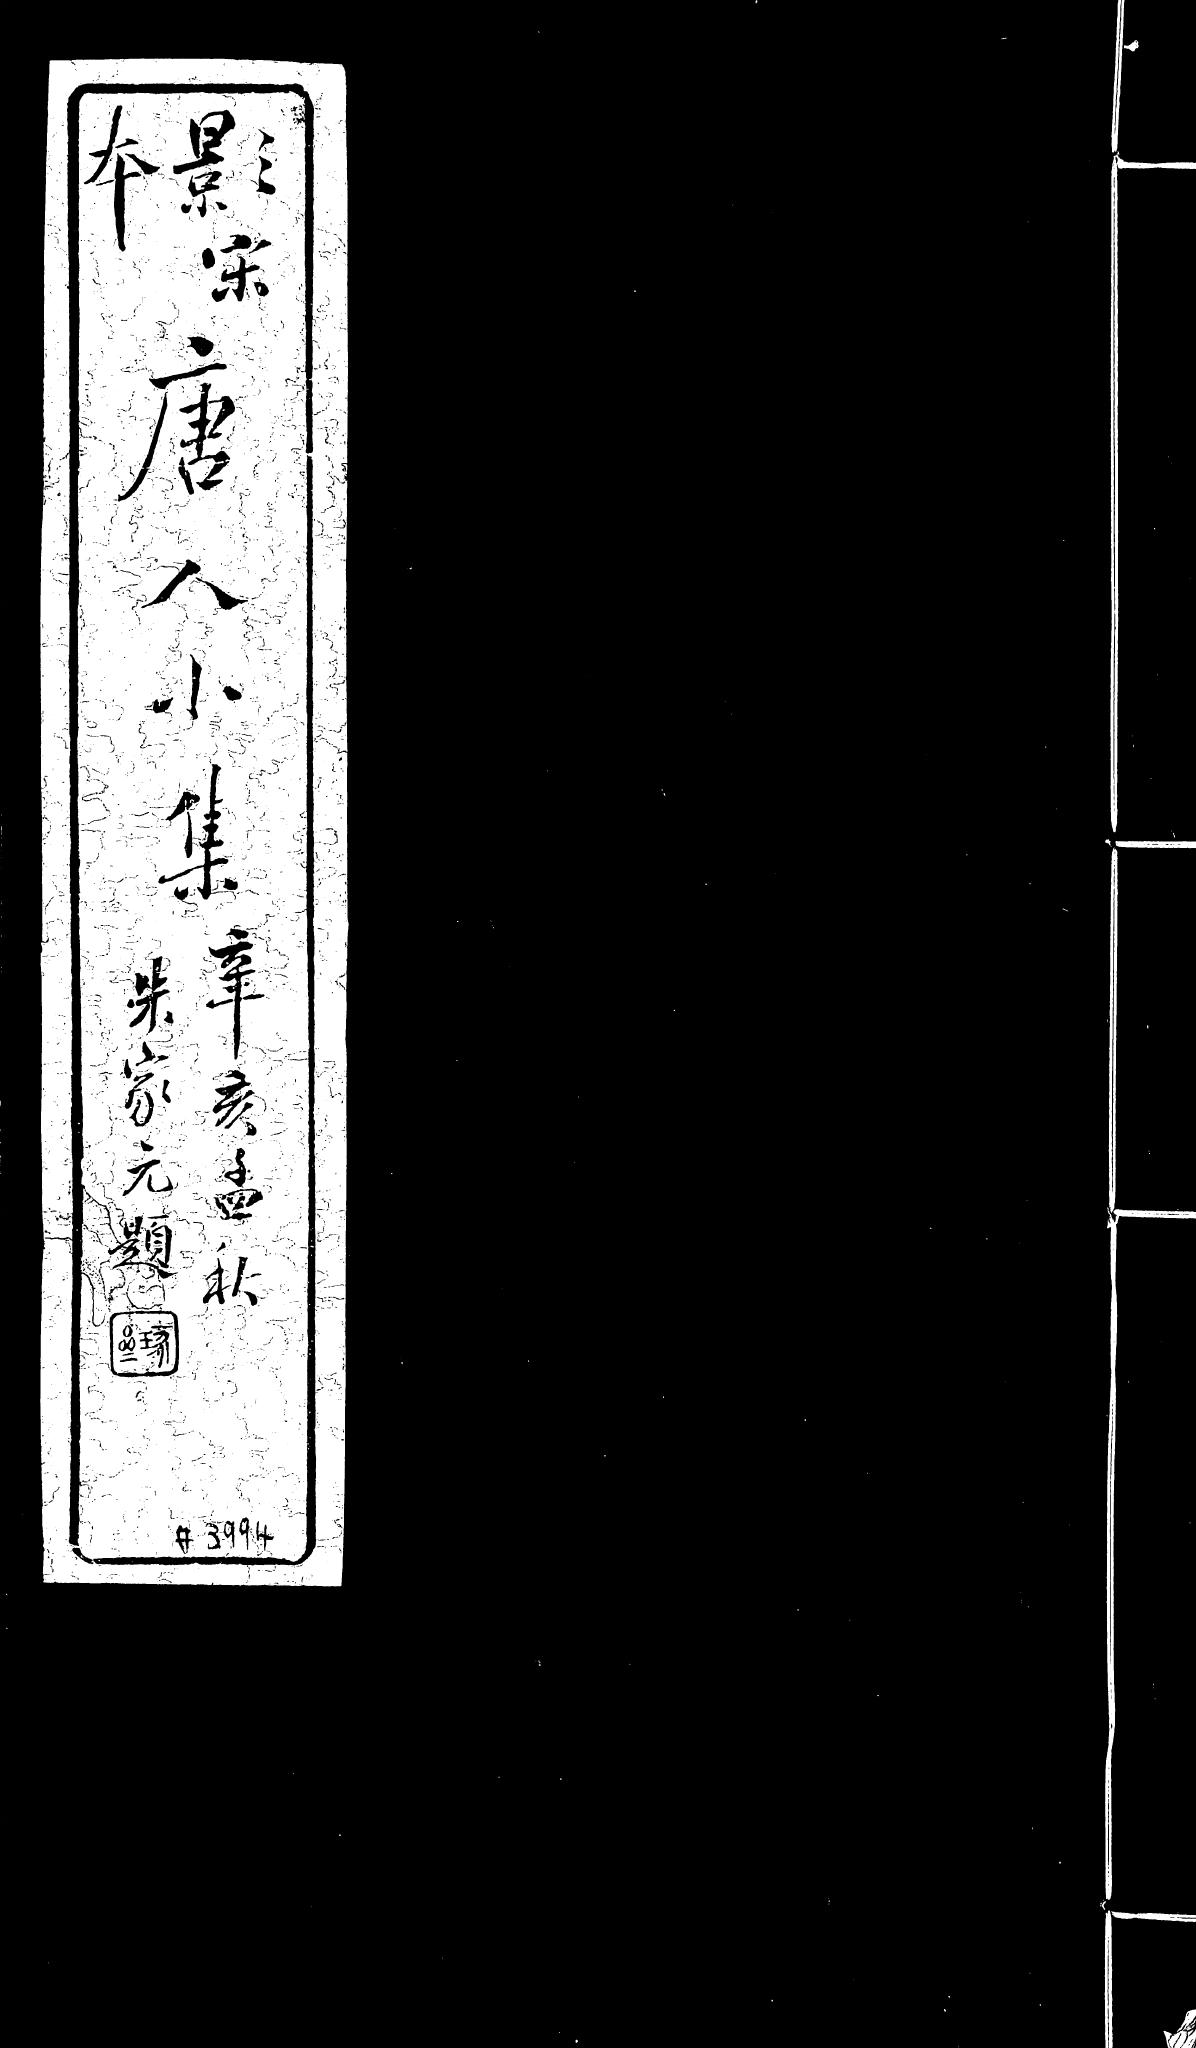 影宋本
唐人小集
辛亥孟秋
吳家元題
# 3994